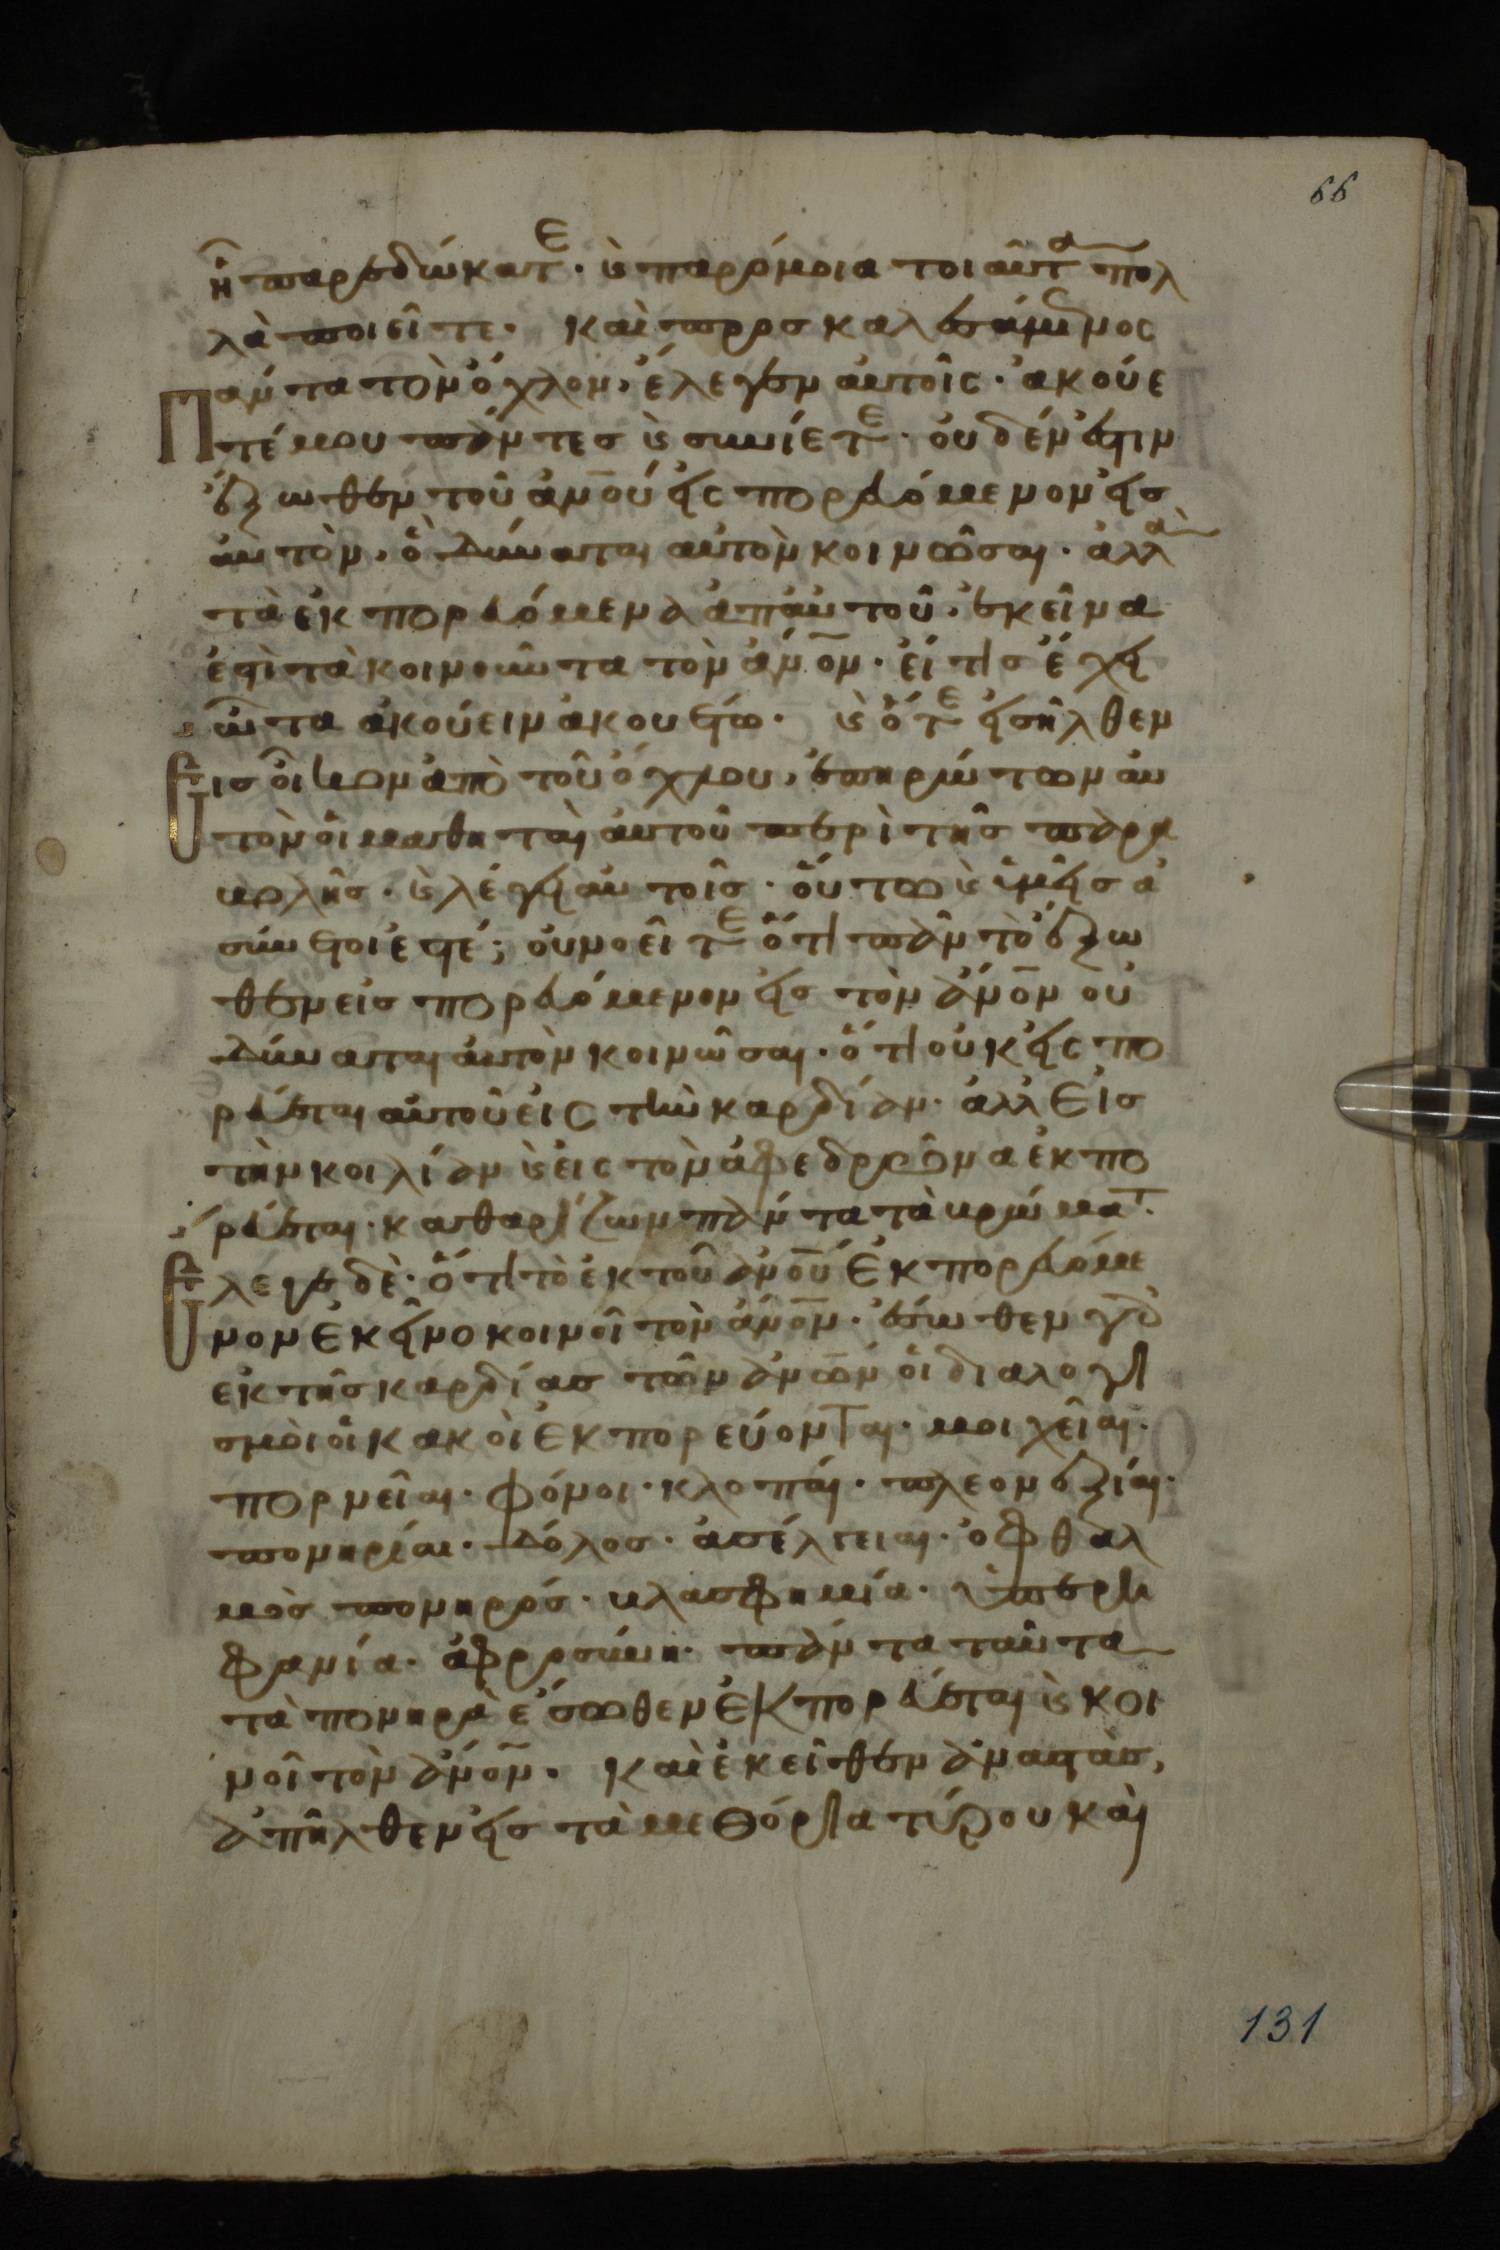 66
ᾗ παρεδώκατε· καὶ παρόμοια τοιαῦτα πολ
λὰ ποιεῖτε· καὶ προσκαλεσάμενος
Πάντα τὸν ὄχλον, ἔλεγεν αὐτοῖς· ἀκούε
τέ μου πάντες καὶ συνίετε· οὐδέν ἐστιν
ἔξωθεν τοῦ ἀνου εἰσπορευόμενον εἰς
αὐτὸν, ὃ δύναται αὐτὸν κοινῶσαι· ἀλλὰ
τὰ ἐκπορευόμενα ἀπ' αὐτοῦ, ἐκεῖνα
ἐστὶ τὰ κοινοῦντα τὸν ἄνον· εἴ τις ἔχει
ὦτα ἀκούειν ἀκουέτω· καὶ ὅτε εἰσῆλθεν
Εἰς οἶκον ἀπὸ τοῦ ὄχλου, ἐπηρώτων αὐ
τὸν οἱ μαθηταὶ αὐτοῦ περὶ τῆς παρα
βολῆς· καὶ λέγει αὐτοῖς· οὕτω καὶ ὑμεῖς ἀ
σύνετοί ἐστέ; οὐ νοεῖτε ὅτι πᾶν τὸ ἔξω
θεν εἰσπορευόμενον εἰς τὸν ἄνον οὐ
δύναται αὐτὸν κοινῶσαι· ὅτι οὐκ εἰσπο
ρεύεται αὐτοῦ εἰς τὴν καρδίαν· ἀλλ' εἰς
τὴν κοιλίαν καὶ εἰς τὸν ἀφεδρῶνα ἐκπο
ρεύεται· καθαρίζων πάντα τὰ βρώματ·
Ἔλεγε δὲ· ὅτι τὸ ἐκ τοῦ ἀνου ἐκπορευόμε
νον ἐκεῖνο κοινοῖ τὸν ἄνον· ἔσωθεν γὰρ
ἐκ τῆς καρδίας τῶν ἀνων οἱ διαλογι
σμοὶ οἱ κακοὶ ἐκπορεύονται· μοιχεῖαι·
πορνεῖαι· φόνοι· κλοπαί· πλεονεξίαι·
πονηρίαι· δόλος· ἀσέλγειαι· ὀφθαλ
μὸς πονηρός· βλασφημία· ὑπερη
φανία· ἀφροσύνη· πάντα ταῦτα
τὰ πονηρὰ ἔσωθεν ἐκπορεύεται καὶ κοι
νοῖ τὸν ἄνον· καὶ ἐκεῖθεν ἀναστὰς,
ἀπῆλθεν εἰς τὰ μεθόρια τύρου καὶ
131